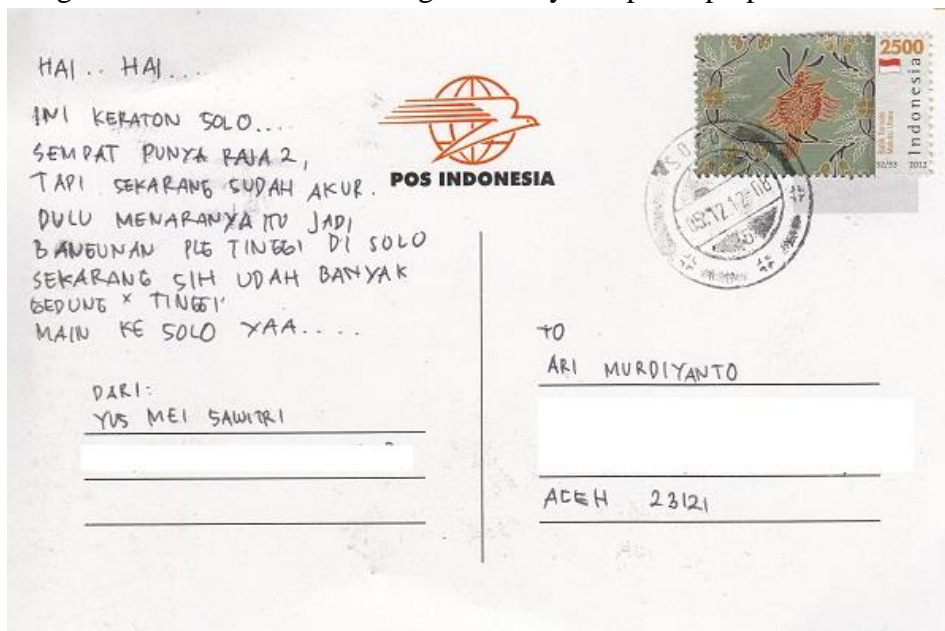 HAI .. HAI ...
INI KERATON SOLO....
SEMPAT PUNYA RAJA 2,
TAPI SEKARANG SUDAH AKUR.
DULU MENARANYA ITU JADI
BANGUNAN PLG TINGGI DI SOLO
SEKARANG SIH UDAH BANYAK
GEDUNG x TINGGI
MAIN KE SOLO YAA.....
DARI:
YUS MEI SAWITRI
POS INDONESIA
2500
Indonesia
2012
SOLO
05.12.12-08
TO
ARI MURDIYANTO
ACEH 23121